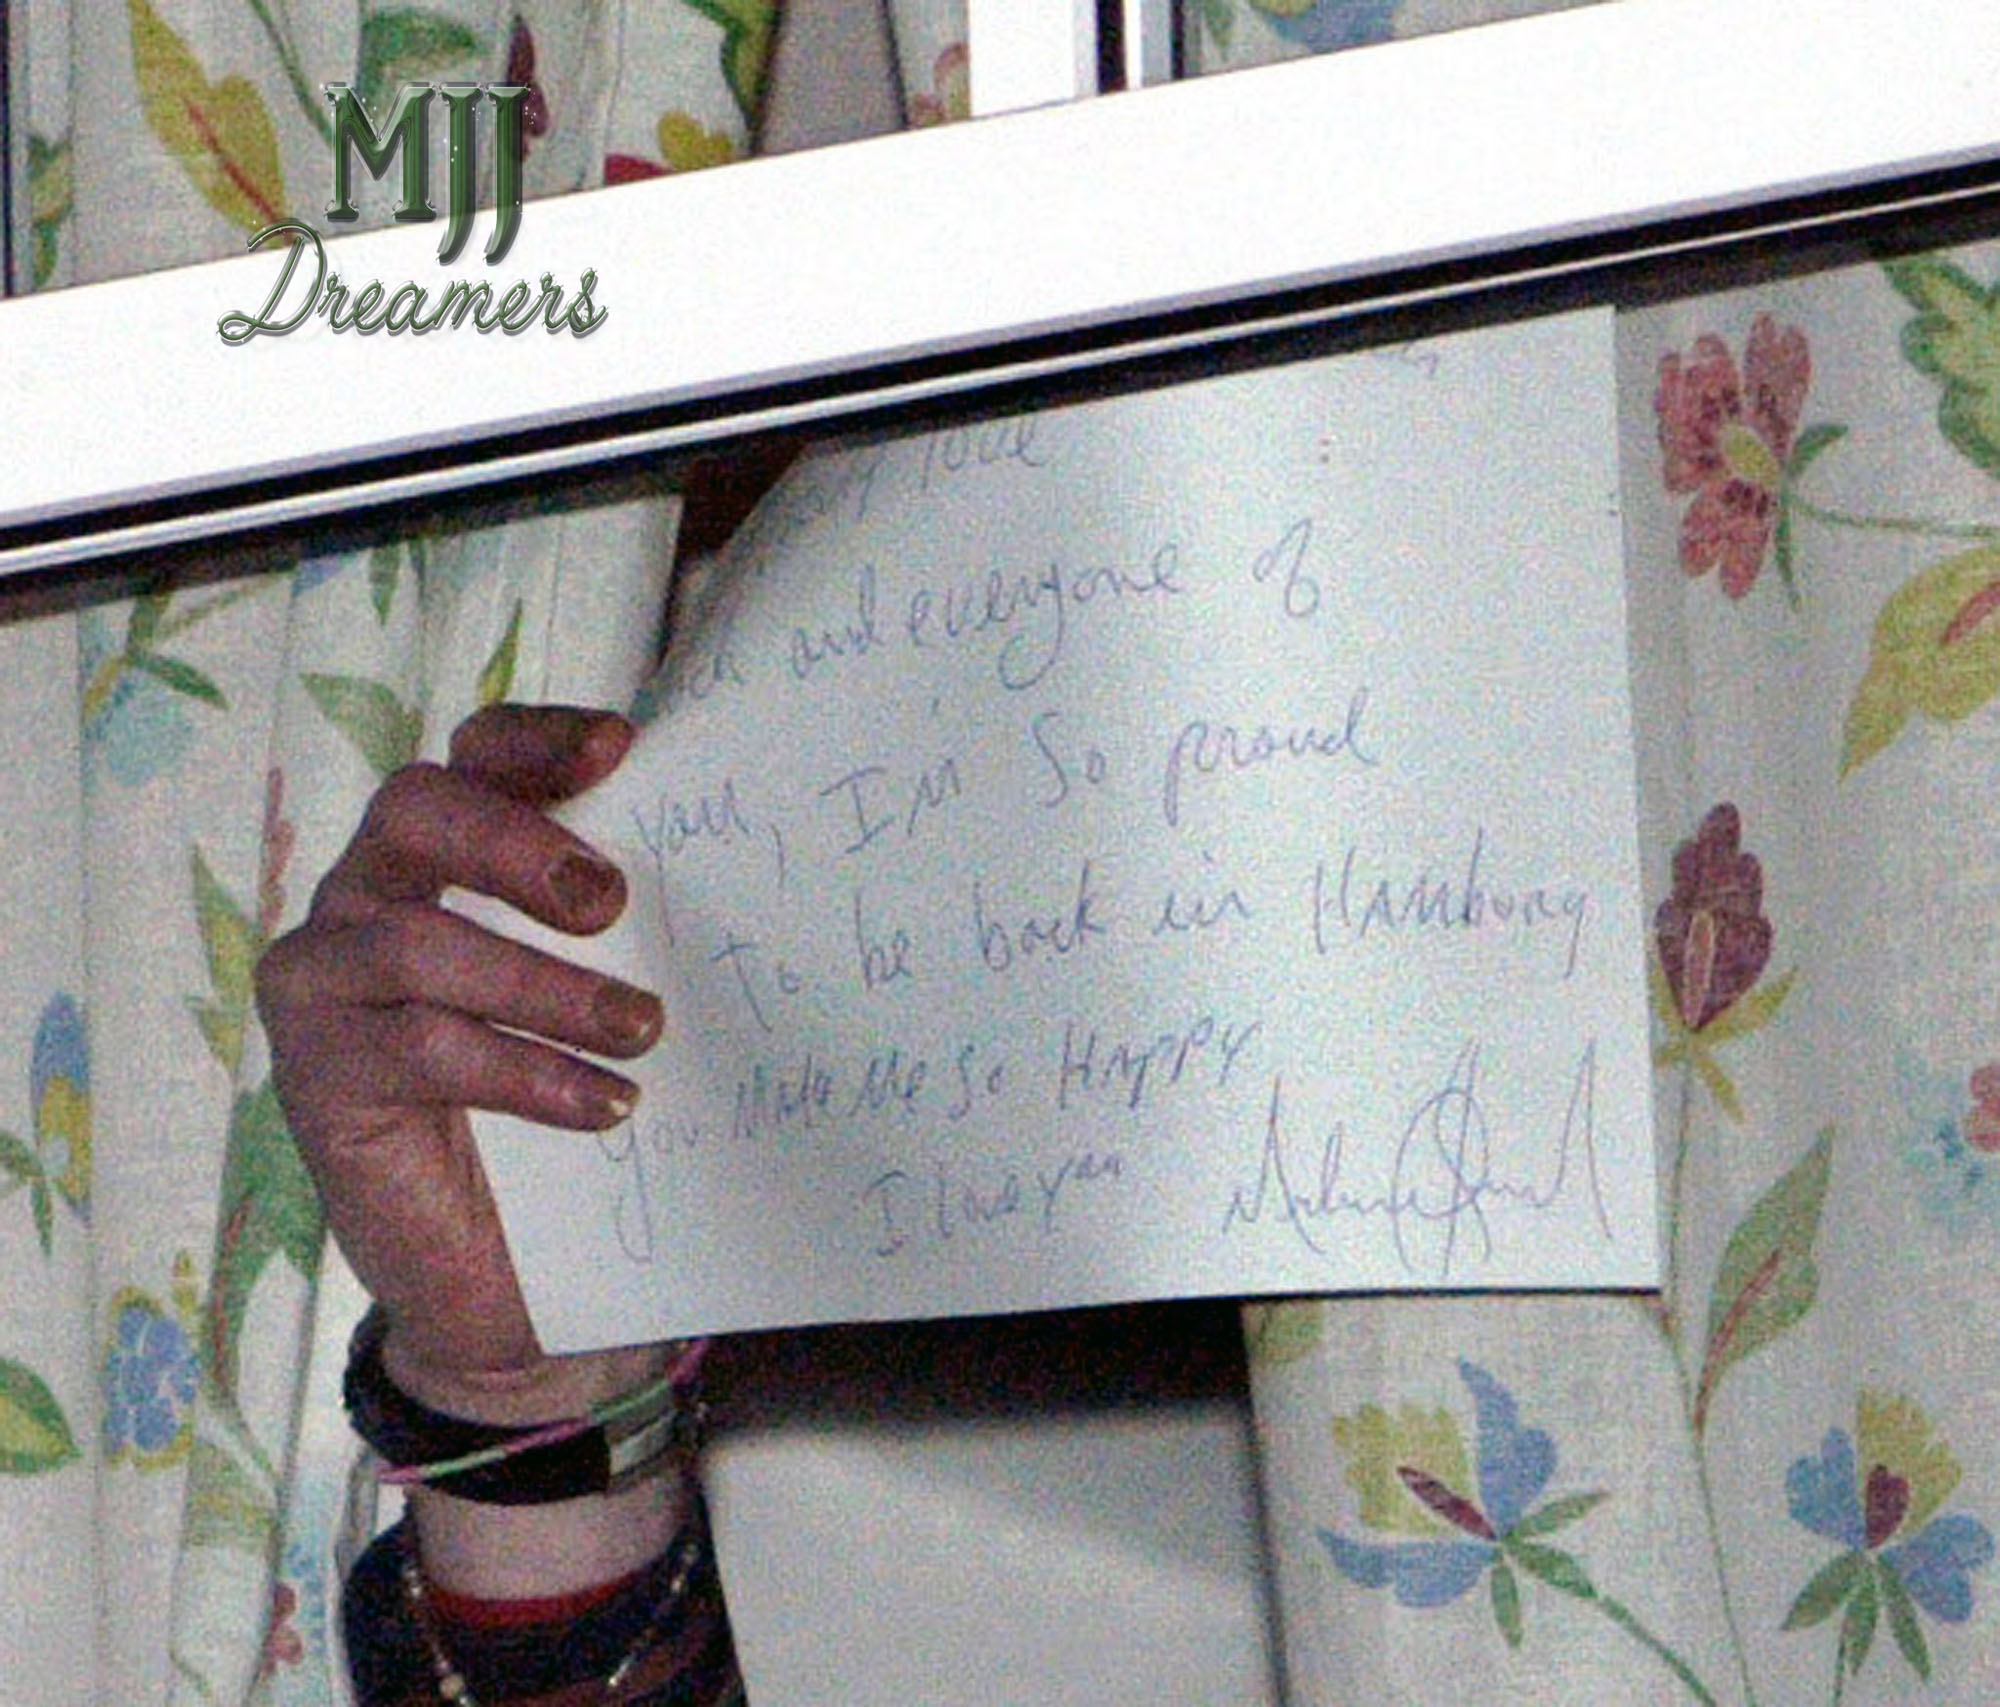 MJJ
Dreamers
and everyone of
you, I'm So proud
To be back in Hamburg
You Make Me So Happy
I love you